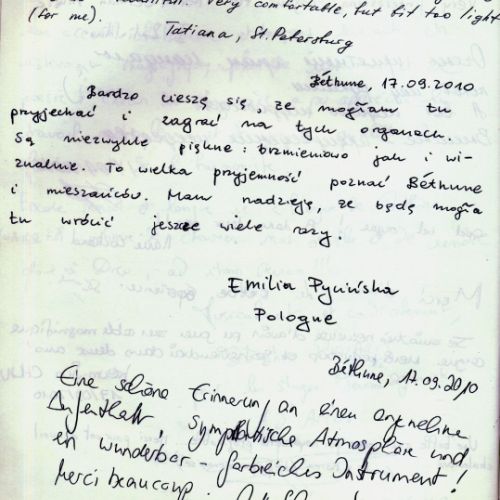 very comfortable, but bit too light
(for me).
Tatiana, St. Petersburg
Béthune, 17.09.2010
Bardzo cieszę się, że mogłam tu
przyjechać i zagrać na tych organach.
Są niezwykle piękne: brzmieniowo jak i wi-
zualnie. To wielka przyjemność poznać Béthune
i mieszańców. Mam nadzieję, że będę mogła
tu wrócić jeszcze wiele razy.
Emilia
Pologne
Béthune, 17.09.2010
Eine schöne Erinnerung an einen angenehme
Aufenthalt Sympathische Atmosphäre und
ein wunderbar - farbreiches Instrument!
Merci beaucoup